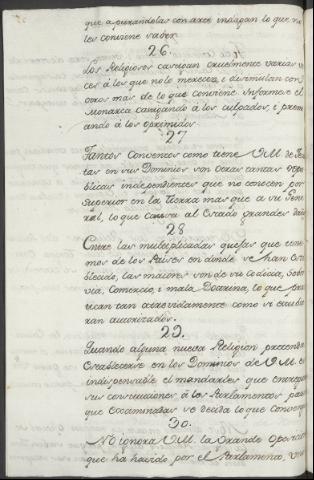 que apurandolas con arte indagan lo que no
les conviene saber
26.
Los Religiosos castigan cruelmente varias ve-
ces á los que no lo merecen, é disimulan con
otros mas de lo que conviene. Informese el
Monarca castigando á los culpados, i premi-
ando á los oprimidos.
27
Tantos Conventos como tiene V.M. de
en sus Dominios son otras tantas repu-
blicas independientes que no conocen por
Superior en la tierra mas que a su Gene-
ral, lo que causa al Estado grandes
28
Entre las multiplicadas quejas que tene-
mos de los Paises en donde se han esta-
blecido, las maiores son de su codicia, Sober-
via, Comercio, i mala Doctrina, lo que prac-
tican tan atrevidamente como si estubie-
ran autorizados.
29.
Quando alguna nueva Religion pretende
Establecerse en los Dominios de V.M. es
indispensable el mandarles que entreguen
sus constituciones á los Parlamentos para
que Examinadas se decida lo que convenga
30.
No ignora V.M. la Grande Oposicion
que ha havido por el Parlamento,